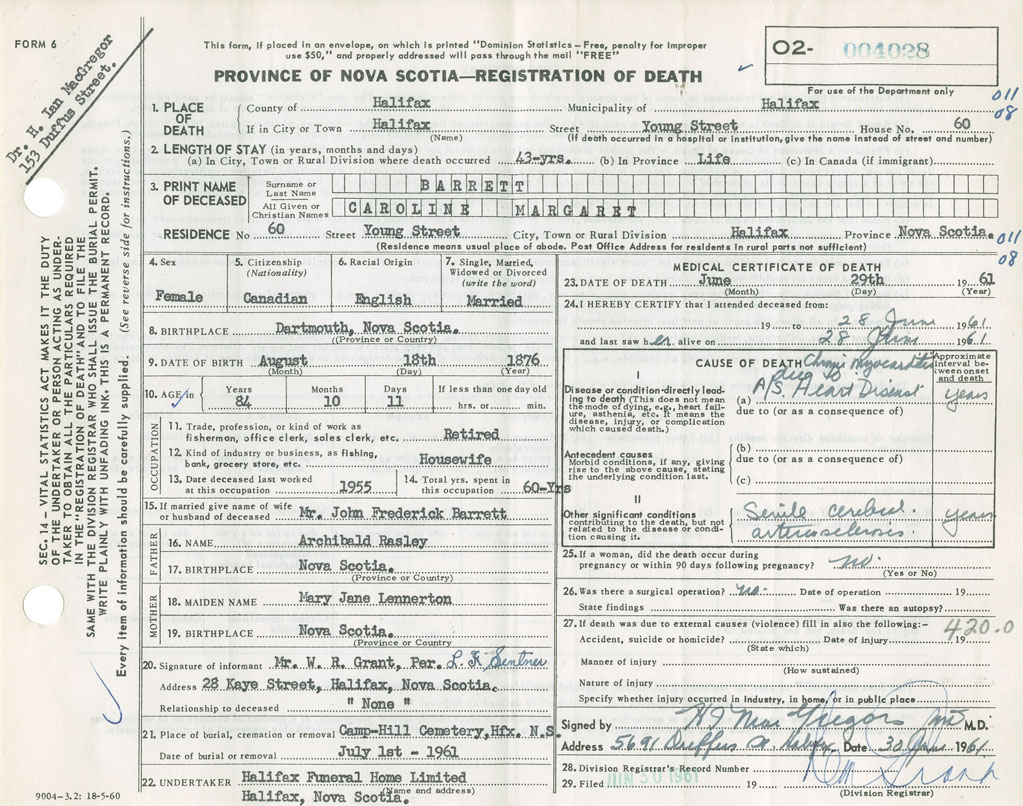 FORM 6
Dr. H. Ian MacGregor
1153 Duffus Street.
This form, if placed in an envelope, on which is printed "Dominion Statistics – Free, penalty for improper
use $50," and properly addressed will pass through the mail "FREE"
PROVINCE OF NOVA SCOTIA—REGISTRATION OF DEATH
02- 004028
For use of the Department only
011
08
SEC. 14 – VITAL STATISTICS ACT MAKES IT THE DUTY
OF THE UNDERTAKER OR PERSON ACTING AS UNDER-
TAKER TO OBTAIN ALL THE PARTICULARS REQUIRED
IN THE "REGISTRATION OF DEATH" AND TO FILE THE
SAME WITH THE DIVISION REGISTRAR WHO SHALL ISSUE THE BURIAL PERMIT.
WRITE PLAINLY WITH UNFADING INK. THIS IS A PERMANENT RECORD.
Every item of information should be carefully supplied. (See reverse side for instructions.)
1. PLACE OF DEATH
County of Halifax Municipality of Halifax
If in City or Town Halifax Street Young Street House No. 60
(Name) (If death occurred in a hospital or institution, give the name instead of street and number)
2. LENGTH OF STAY (in years, months and days)
(a) In City, Town or Rural Division where death occurred 43-yrs. (b) In Province Life (c) In Canada (if immigrant)
3. PRINT NAME OF DECEASED
Surname or Last Name BARRETT
All Given or Christian Names CAROLINE MARGARET
RESIDENCE No 60 Street Young Street City, Town or Rural Division Halifax Province Nova Scotia.
(Residence means usual place of abode. Post Office Address for residents in rural parts not sufficient)
011
08
4. Sex
Female
5. Citizenship (Nationality)
Canadian
6. Racial Origin
English
7. Single, Married, Widowed or Divorced (write the word)
Married
8. BIRTHPLACE Dartmouth, Nova Scotia.
(Province or Country)
9. DATE OF BIRTH August 18th 1876
(Month) (Day) (Year)
10. AGE in Years Months Days If less than one day old
84 10 11 hrs. or min.
OCCUPATION
11. Trade, profession, or kind of work as
fisherman, office clerk, sales clerk, etc. Retired
12. Kind of industry or business, as fishing,
bank, grocery store, etc. Housewife
13. Date deceased last worked at this occupation 1955
14. Total yrs. spent in this occupation 60-Yrs
15. If married give name of wife or husband of deceased Mr. John Frederick Barrett
FATHER
16. NAME Archibald Rasley
17. BIRTHPLACE Nova Scotia.
(Province or Country)
MOTHER
18. MAIDEN NAME Mary Jane Lennerton
19. BIRTHPLACE Nova Scotia.
(Province or Country
20. Signature of informant Mr. W. R. Grant, Per.
Address 28 Kaye Street, Halifax, Nova Scotia.
Relationship to deceased " None "
21. Place of burial, cremation or removal Camp-Hill Cemetery, Hfx. N.S.
Date of burial or removal July 1st - 1961
22. UNDERTAKER Halifax Funeral Home Limited
(Name and address)
Halifax, Nova Scotia.
9004-3.2: 18-5-60
MEDICAL CERTIFICATE OF DEATH
23. DATE OF DEATH June 29th 19 61
(Month) (Day) (Year)
24. I HEREBY CERTIFY that I attended deceased from:
19 to 28 June 1961
and last saw her alive on 28 June 1961
CAUSE OF DEATH
Approximate interval between onset and death
I
Disease or condition directly leading to death (This does not mean the mode of dying, e.g., heart failure, asthenia, etc. It means the disease, injury, or complication which caused death.)
Chronic Myocarditis
due to
(a) A/S. Heart Disease years
due to (or as a consequence of)
Antecedent causes
Morbid conditions, if any, giving rise to the above cause, stating the underlying condition last.
(b)
due to (or as a consequence of)
(c)
II
Other significant conditions
contributing to the death, but not related to the disease or condition causing it.
Senile cerebral years
arteriosclerosis.
25. If a woman, did the death occur during
pregnancy or within 90 days following pregnancy? no.
(Yes or No)
26. Was there a surgical operation? no. Date of operation 19
State findings Was there an autopsy?
27. If death was due to external causes (violence) fill in also the following:–
420.0
Accident, suicide or homicide? Date of injury 19
(State which)
Manner of injury
(How sustained)
Nature of injury
Specify whether injury occurred in industry, in home, or in public place
Signed by H I MacGregor M.D.
Address 5691 Duffus St. Date 30 June 1961
28. Division Registrar's Record Number
29. Filed JUN 30 1961 19
(Division Registrar)